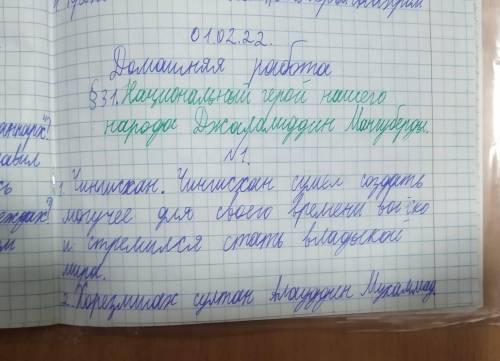 01.02.22.
Домашняя работа
§31. Национальный герой нашего
народа Джалалиддин Мангуберды.
№1.
1. Чингисхан. Чингисхан сумел создать
могучее для своего времени войско
и стремился стать владыкой
мира.
2. Хорезмшах султан Алауддин Мухаммад